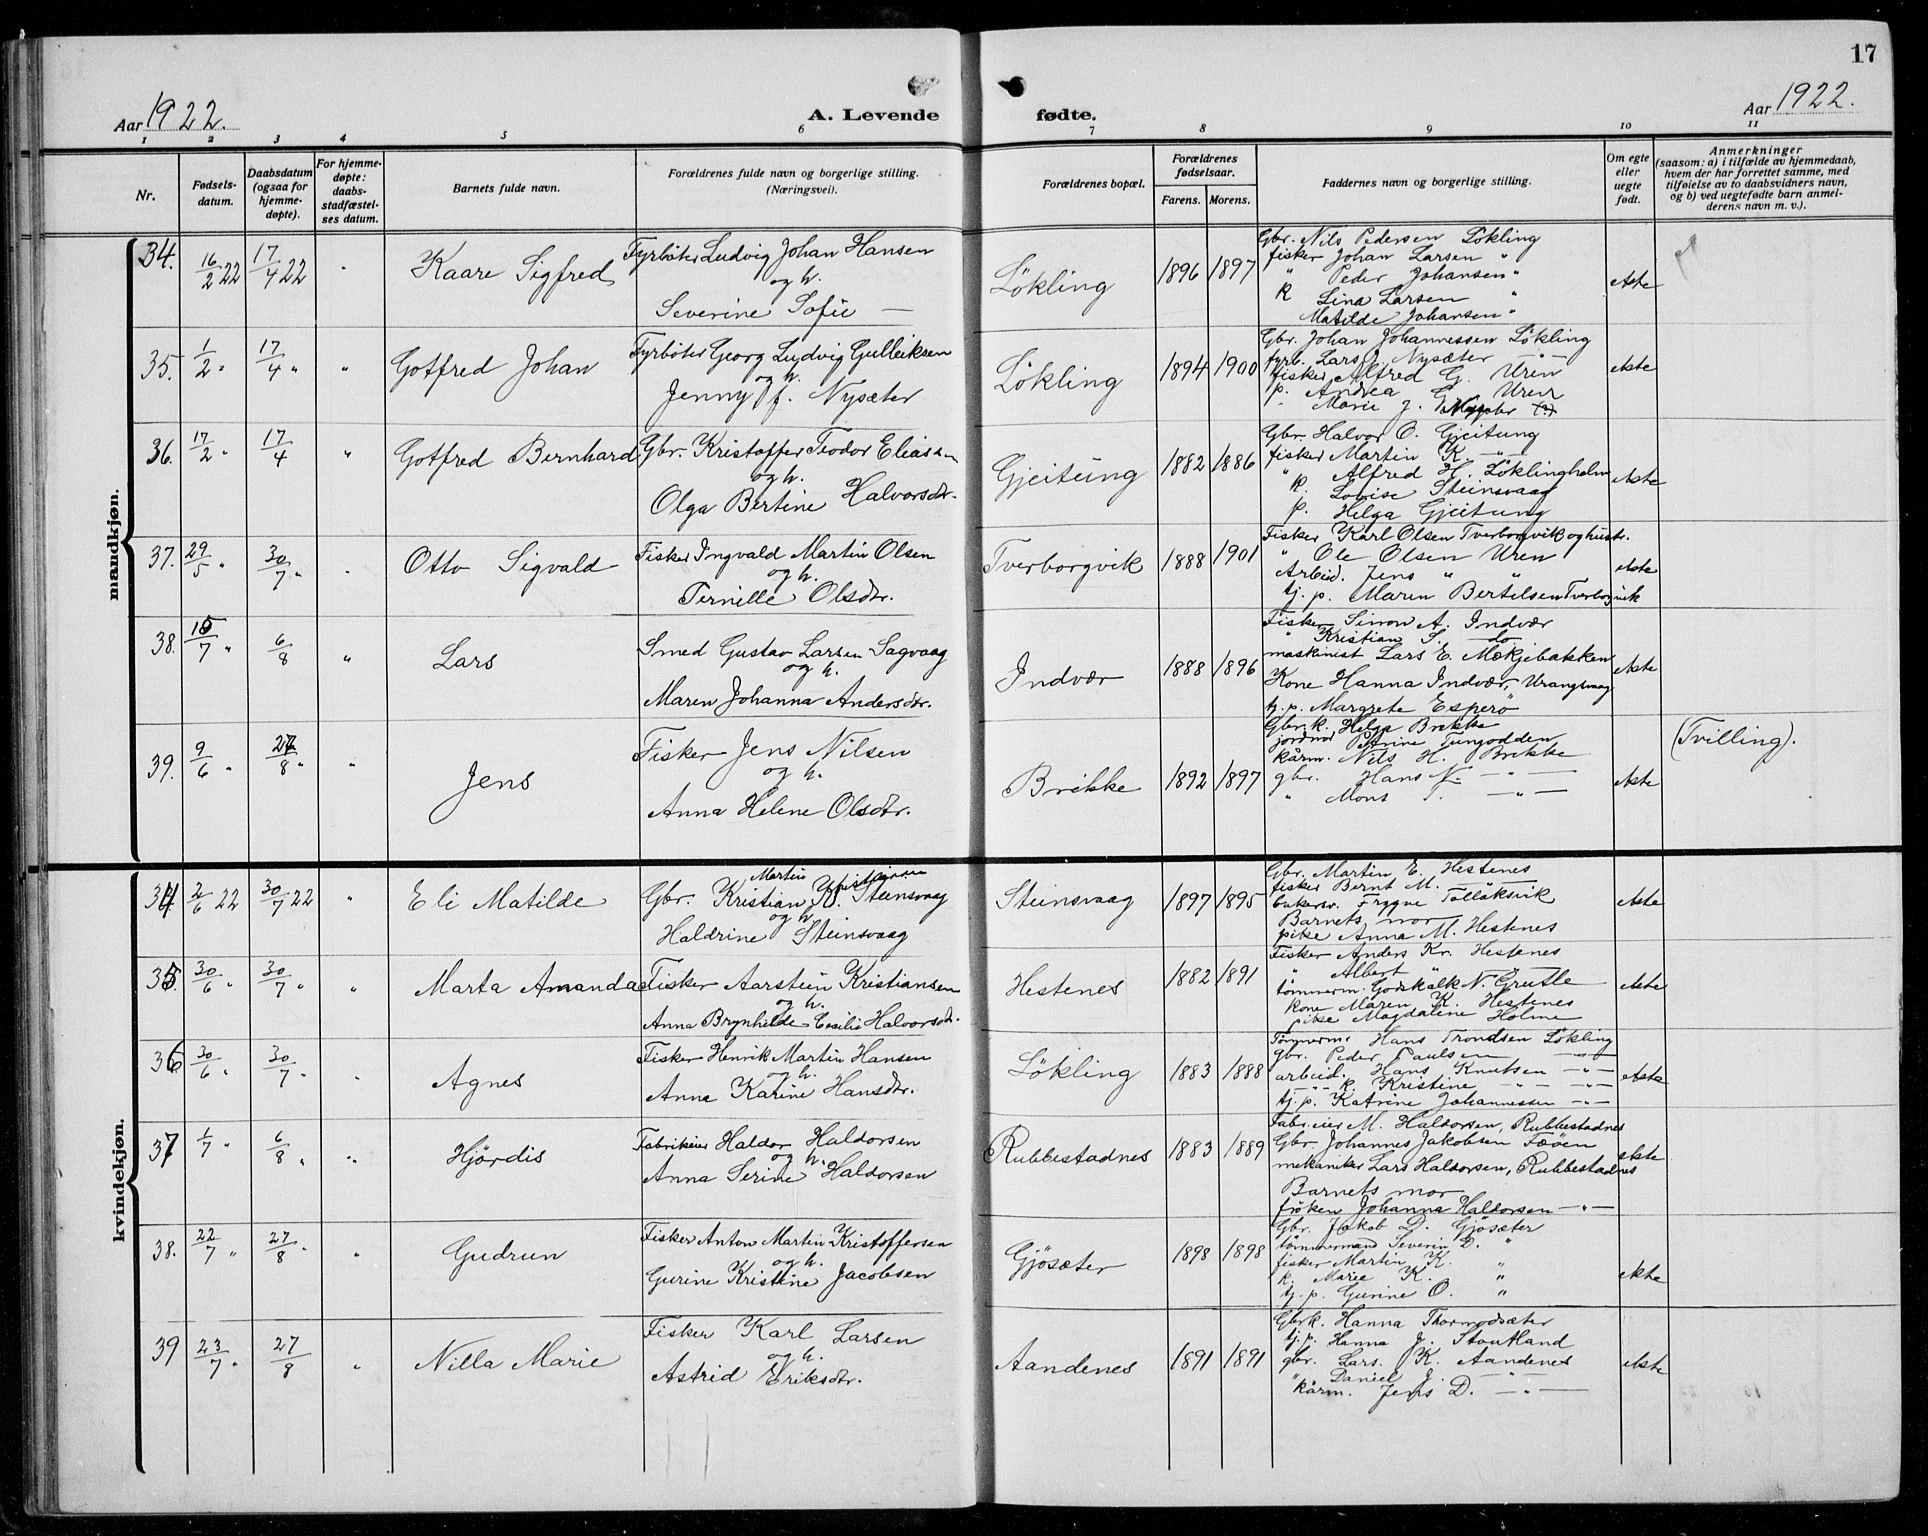 17
Aar 1922.
A. Levende
fødte.
Aar 1922.
1 2 3 4 5 6 7 8 9 10 11
Nr.
Fødsels-
datum.
Daabsdatum
(ogsaa for
hjemme-
døpte).
For hjemme-
døpte:
daabs-
stadfæstel-
ses datum.
Barnets fulde navn.
Forældrenes fulde navn og borgerlige stilling.
(Næringsvei).
Forældrenes bopæl.
Forældrenes
fødselsaar.
Farens. Morens.
Faddernes navn og borgerlige stilling.
Om egte
eller
uegte
født.
Anmerkninger
(saasom: a) i tilfælde av hjemmedaab,
hvem der har forrettet samme, med
tilføielse av to daabsvidners navn,
og b) ved uegtefødte barn anmel-
derens navn m. v.).
mandkjøn.
34. 16/2 22 17/4 22 " Kaare Sigfred
Fyrbøter Ludvig Johan Hansen
og h.
Severine Sofie —
Løkling 1896 1897
Gbr. Nils Pedersen Løkling
fisker Johan Larsen "
" Peder Johansen "
k Lina Larsen "
Matilde Johansen "
ekte
35. 1/2 " 17/4 " " Gotfred Johan
Fyrbøter Georg Ludvig Gulleiksen
og h.
Jenny f. Nysæter
Løkling 1894 1900
Gbr. Johan Johannessen Løkling
fyrb. Lars J. Nysæter —"—
fisker Alfred G. Uren
p. Andrea G. Uren
" Marie J.
ekte
36. 17/2 " 17/4 " Gotfred Bernhard
Gbr. Kristoffer Teodor Eliassen
og h.
Olga Bertine Halvorsdtr.
Gjeitung 1882 1886
Gbr. Halvor O. Gjeitung
fisker Martin K. —"—
" Alfred H. Løklingholm
k. Lovise Steinsvaag
p. Helga Gjeitung
ekte
37. 29/5 " 30/7 " " Otto Sigvald
Fisker Ingvald Martin Olsen
og h.
Pernille Olsdtr.
Tverborgvik 1888 1901
Fisker Karl Olsen Tverborgvik og hustr.
" Ole Olsen Uren
Arbeid. Jens " "
tj. p. Maren Bertelsen Tverborgvik
ekte
38. 15/7 " 6/8 " Lars
Smed Gustav Larsen Sagvaag
og h.
Maren Johanna Andersdtr.
Indvær 1888 1896
Fisker Simon A. Indvær
" Kristian S. do
maskinist Lars E. Mækjebakken
Kone Hanna Indvær, Urangsvaag
tj. p. Margrete Esperø "
ekte
39. 9/6 " 27/8 " " Jens
Fisker Jens Nilsen
og h.
Anna Helene Olsdtr.
Brekke 1892 1897
Gbr.k. Helga Brekke
jordmor Petrine Tungodden
kårm. Nils H. Brekke
gbr. Hans N. —"—
" Mons T. —"—
ekte
(Tvilling).
kvindekjøn.
34. 2/6 22 30/7 22 " Eli Matilde
Martin Kristiansen
Gbr. Kristian K. Steinsvaag
og h.
Haldrine Steinsvaag
Steinsvaag 1897 1895
Gbr. Martin E. Hestenes
fisker Bernt M. —
bakersv. Trygve Tolläksvik
Barnets mor
pike Anna M. Hestenes
ekte
35. 30/6 " 30/7 " " Marta Amanda
Fisker Aarstein Kristiansen
og h.
Anna Brynhilde Cesilie Halvorsdtr.
Hestenes 1882 1891
Fisker Anders Kr. Hestenes
" Albert "
tømmerm. Godskalk N. Grutle
kone Maren K. Hestenes
pike Magdaline Holme
ekte
36. 30/6 " 30/7 " " Agnes
Fisker Henrik Martin Hansen
og h.
Anna Karine Hansdtr.
Løkling 1883 1888
Tømmerm. Hans Trondsen Løkling
gbr. Peder Paulsen —"—
arbeid. Hans Knutsen —"—
—"— k. Kristine —"— —"—
tj. p. Katrine Johannessen —"—
ekte
37 1/7 " 6/8 " " Hjørdis
Fabrikeier Haldor Haldorsen
og h.
Anna Serine Haldorsen
Rubbestadnes 1883 1889
Fabr.eier M. Haldorsen, Rubbestadnes
Gbr. Johannes Jakobsen Føøen
mekaniker Lars Haldorsen, Rubbestadnes
Barnets mor
frøken Johanna Haldorsen —"—
ekte
38. 22/7 " 27/8 " " Gudrun
Fisker Anton Martin Kristoffersen
og h.
Gurine Kristine Jacobsen
Gjøsæter 1898 1898
Gbr. Jakob D. Gjøsæter
tømmermand Severin D. "
fisker Martin K. "
k. Marie K. "
tj. p. Gurine O. "
ekte
39 23/7 " 27/8 " Nilla Marie
Fisker Karl Larsen
og h.
Astrid Eriksdtr.
Aandenes 1891 1891
Gbr.k. Hanna Thormodsæter
tj. p. Hanna J. Stoutland
gbr. Lars. K. Aandenes
" Daniel J. —"—
kårm. Jens D. —"—
ekte